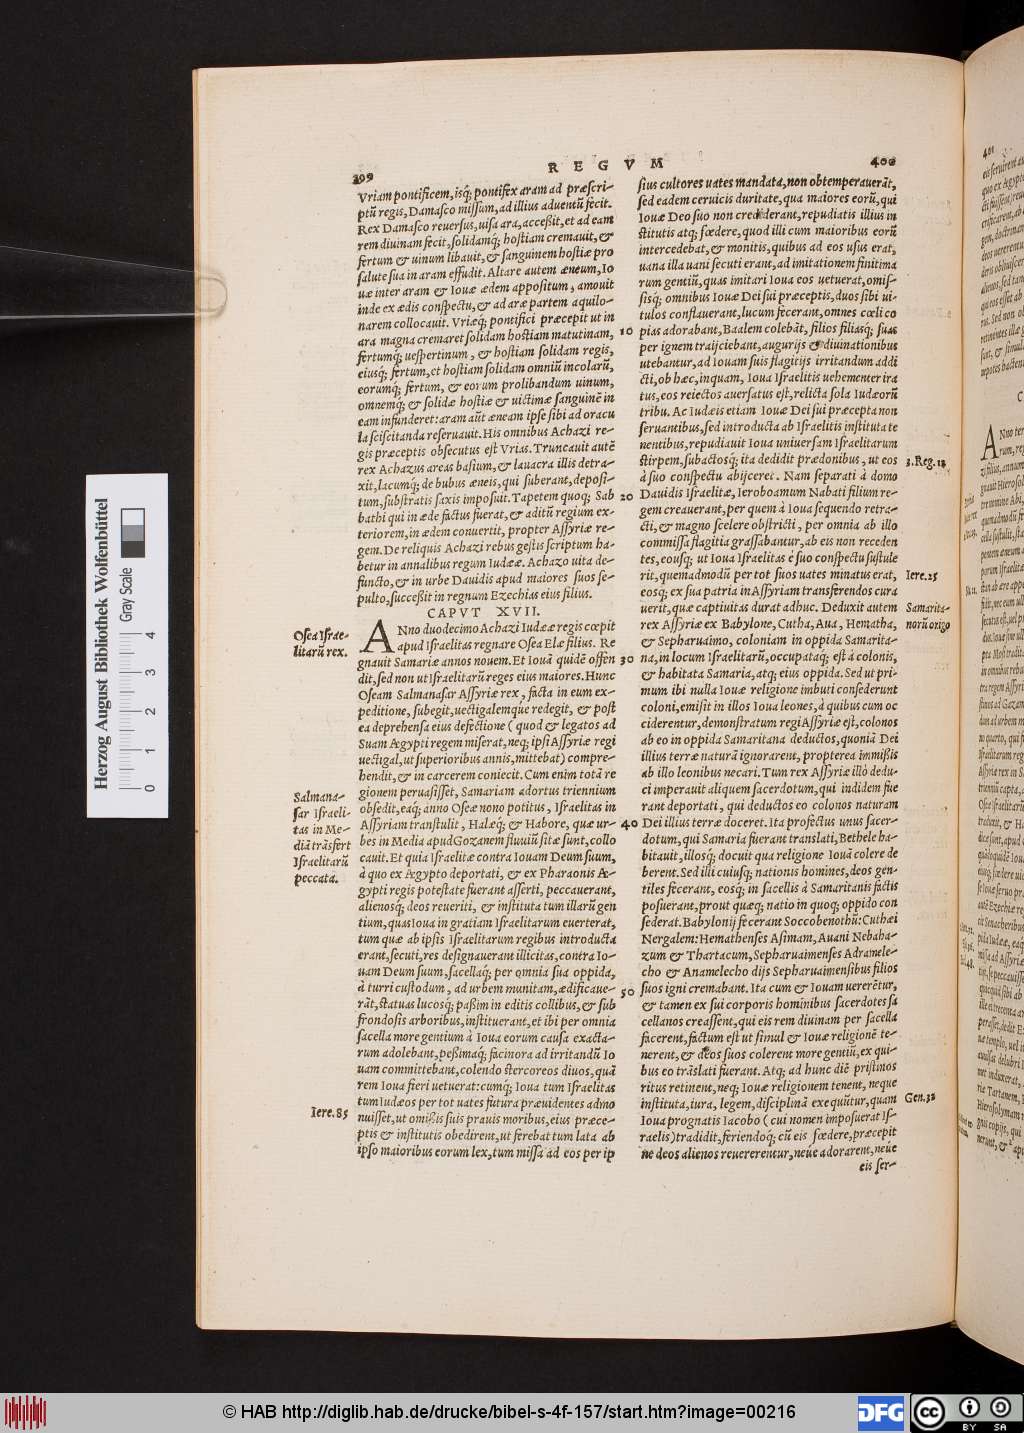 REGVM
399
Vriam pontificem, isq; pontifex aram ad præscri-
ptũ regis, Damasco missum, ad illius aduentũ fecit.
Rex Damasco reuersus, uisa ara, accessit, et ad eam
rem diuinam fecit, solidamq; hostiam cremauit, &
fertum & uinum libauit, & sanguinem hostiæ pro
salute sua in aram effudit. Altare autem æneum, Io
uæ inter aram & Iouæ ædem appositum, amouit
inde ex ædis conspectu, & ad aræ partem aquilo-
narem collocauit. Vriæq; pontifici præcepit ut in
ara magna cremaret solidam hostiam matutinam,
fertumq; uespertinum, & hostiam solidam regis,
eiusq; fertum, et hostiam solidam omniũ incolarũ,
eorumq; fertum, & eorum prolibandum uinum,
omnemq; & solidæ hostiæ & uictimæ sanguinẽ in
eam infunderet: aram aũt æneam ipse sibi ad oracu
la sciscitanda reseruauit. His omnibus Achazi re-
gis præceptis obsecutus est Vrias. Truncauit autẽ
rex Achazus areas basium, & lauacra illis detra-
xit, lacumq; de bubus æneis, qui suberant, deposi-
tum, substratis saxis imposuit. Tapetem quoq; Sab
bathi qui in æde factus fuerat, & aditũ regium ex-
teriorem, in ædem conuertit, propter Assyriæ re-
gem. De reliquis Achazi rebus gestis scriptum ha-
betur in annalibus regum Iudææ. Achazo uita de-
functo, & in urbe Dauidis apud maiores suos se-
pulto, successit in regnum Ezechias eius filius.
CAPVT XVII.
Osea Israe-
litarũ rex.
ANno duodecimo Achazi Iudææ regis cœpit
apud Israelitas regnare Osea Elæ filius. Re
gnauit Samariæ annos nouem. Et Iouã quidẽ offen
dit, sed non ut Israelitarũ reges eius maiores. Hunc
Oseam Salmanasar Assyriæ rex, facta in eum ex-
peditione, subegit, uectigalemque redegit, & post
ea deprehensa eius defectione (quod & legatos ad
Suam Ægypti regem miserat, neq; ipsi Assyriæ regi
uectigal, ut superioribus annis, mittebat) compre-
hendit, & in carcerem coniecit. Cum enim totã re
gionem peruasisset, Samariam adortus triennium
obsedit, eaq; anno Oseæ nono potitus, Israelitas in
Assyriam transtulit, Halæq; & Habore, quæ ur-
bes in Media apud Gozanem fluuiũ sitæ sunt, collo
cauit. Et quia Israelitæ contra Iouam Deum suum,
à quo ex Ægypto deportati, & ex Pharaonis Æ-
gypti regis potestate fuerant asserti, peccauerant,
alienosq; deos reueriti, & instituta tum illarũ gen
tium, quas Ioua in gratiam Israelitarum euerterat,
tum quæ ab ipsis Israelitarum regibus introducta
erant, secuti, res designauerant illicitas, contra Io-
uam Deum suum, sacellaq; per omnia sua oppida,
à turri custodum, ad urbem munitam, ædificaue-
rãt, statuas lucosq; passim in editis collibus, & sub
frondosis arboribus, instituerant, et ibi per omnia
sacella more gentium à Ioua eorum causa exacta-
rum adolebant, pessimaq; facinora ad irritandũ Io
uam committebant, colendo stercoreos diuos, quã
rem Ioua fieri uetuerat: cumq; Ioua tum Israelitas
tum Iudæos per tot uates futura præuidentes admo
nuisset, ut omissis suis prauis moribus, eius præce-
ptis & institutis obedirent, ut ferebat tum lata ab
ipso maioribus eorum lex, tum missa ad eos per ip
Salmana-
sar Israeli-
tas in Me-
diã trãsfert
Israelitarũ
peccata.
Iere. 85
10
20
30
40
50
400
sius cultores uates mandata, non obtemperauerãt,
sed eadem ceruicis duritate, qua maiores eorũ, qui
Iouæ Deo suo non crediderant, repudiatis illius in
stitutis atq; fœdere, quod illi cum maioribus eorũ
intercedebat, & monitis, quibus ad eos usus erat,
uana illa uani secuti erant, ad imitationem finitima
rum gentiũ, quas imitari Ioua eos uetuerat, omis-
sisq; omnibus Iouæ Dei sui præceptis, duos sibi ui-
tulos conflauerant, lucum fecerant, omnes cœli co
pias adorabant, Baalem colebãt, filios filiasq; suas
per ignem traijciebant, augurijs & diuinationibus
utebantur, ad Iouam suis flagitijs irritandum addi
cti, ob hæc, inquam, Ioua Israelitis uehementer ira
tus, eos reiectos auersatus est, relicta sola Iudæorũ
tribu. Ac Iudæis etiam Iouæ Dei sui præcepta non
seruantibus, sed introducta ab Israelitis instituta te
nentibus, repudiauit Ioua uniuersam Israelitarum
stirpem, subactosq; ita dedidit prædonibus, ut eos
à suo conspectu abijceret. Nam separati à domo
Dauidis Israelitæ, Ieroboamum Nabati filium re-
gem creauerant, per quem à Ioua sequendo retra-
cti, & magno scelere obstricti, per omnia ab illo
commissa flagitia grassabantur, ab eis non receden
tes, eousq; ut Ioua Israelitas è suo conspectu sustule
rit, quemadmodũ per tot suos uates minatus erat,
eosq; ex sua patria in Assyriam transferendos cura
uerit, quæ captiuitas durat adhuc. Deduxit autem
rex Assyriæ ex Babylone, Cutha, Aua, Hematha,
& Sepharuaimo, coloniam in oppida Samarita-
na, in locum Israelitarũ, occupataq; est à colonis,
& habitata Samaria, atq; eius oppida. Sed ut pri-
mum ibi nulla Iouæ religione imbuti consederunt
coloni, emisit in illos Ioua leones, à quibus cum oc
ciderentur, demonstratum regi Assyriæ est, colonos
ab eo in oppida Samaritana deductos, quoniã Dei
illius terræ naturã ignorarent, propterea immissis
ab illo leonibus necari. Tum rex Assyriæ illò dedu-
ci imperauit aliquem sacerdotum, qui indidem fue
rant deportati, qui deductos eo colonos naturam
Dei illius terræ doceret. Ita profectus unus sacer-
dotum, qui Samaria fuerant translati, Bethele ha-
bitauit, illosq; docuit qua religione Iouã colere de
berent. Sed illi cuiusq; nationis homines, deos gen-
tiles fecerant, eosq; in sacellis à Samaritanis factis
posuerant, prout quæq; natio in quoq; oppido con
sederat. Babylonij fecerant Soccobenothũ: Cuthæi
Nergalem: Hemathenses Asimam, Auani Nebaha-
zum & Thartacum, Sepharuaimenses Adramele-
cho & Anamelecho dijs Sepharuaimensibus filios
suos igni cremabant. Ita cum & Iouam uererẽtur,
& tamen ex sui corporis hominibus sacerdotes sa
cellanos creassent, qui eis rem diuinam per sacella
facerent, factum est ut simul & Iouæ religionẽ te-
nerent, & deos suos colerent more gentiũ, ex qui-
bus eo trãslati fuerant. Atq; ad hunc diẽ pristinos
ritus retinent, neq; Iouæ religionem tenent, neque
instituta, iura, legem, disciplinã exequũtur, quam
Ioua prognatis Iacobo (cui nomen imposuerat Is-
raelis) tradidit, feriendoq; cũ eis fœdere, præcepit
ne deos alienos reuererentur, neue adorarent, neue
eis ser-
3. Reg. 12
Iere. 25
Samarita-
norũ origo
Gen. 32
401
Herzog August Bibliothek Wolfenbüttel
Gray Scale
0 1 2 3 4
© HAB http://diglib.hab.de/drucke/bibel-s-4f-157/start.htm?image=00216
DFG
cc
BY SA